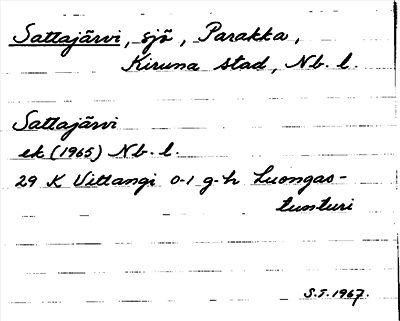 Sattajärvi, sjö, Parakka,
Kiruna stad, Nb. l.
Sattajärvi
ek (1965) Nb. l.
29 K Vittangi 0-1 g-h Luongas-
tunturi
S.S. 1967.